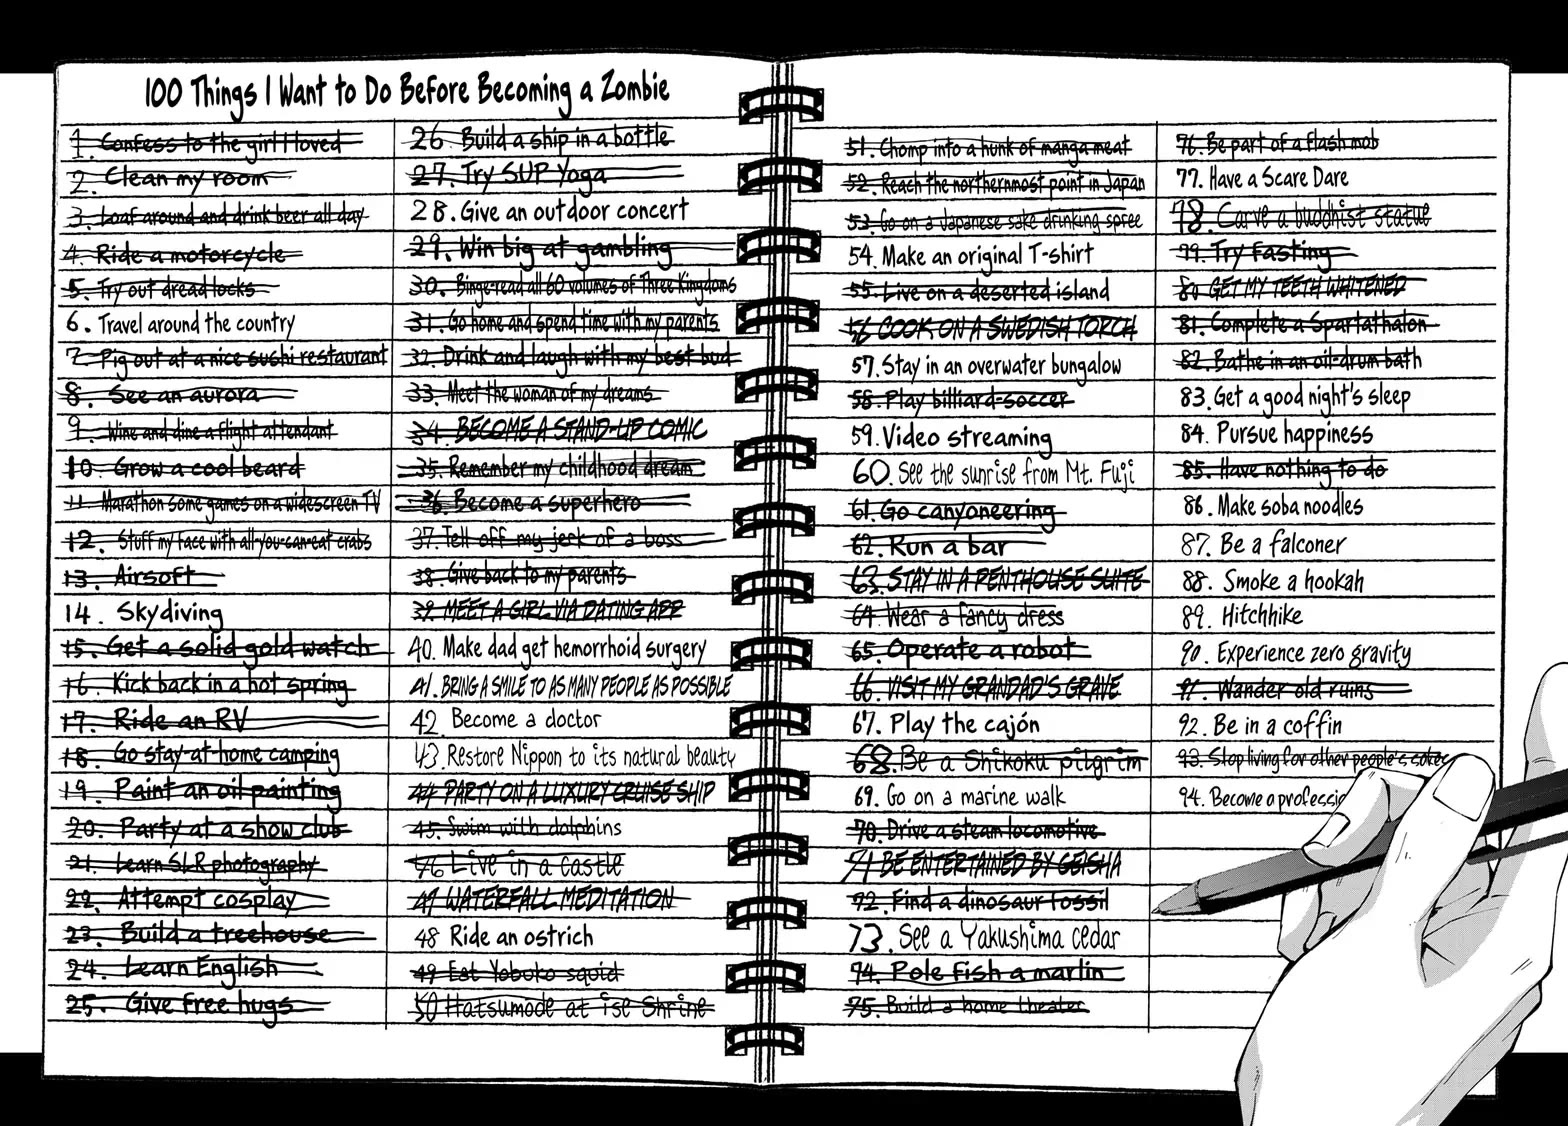 100 Things I Want to Do Before Becoming a Zombie
1. Confess to the girl I loved
2. Clean my room
3. Loaf around and drink beer all day
4. Ride a motorcycle
5. Try out dread locks
6. Travel around the country
7. Pig out at a nice sushi restaurant
8. See an aurora
9. Wine and dine a flight attendant
10. Grow a cool beard
11. Marathon some games on a widescreen TV
12. Stuff my face with all-you-can-eat crabs
13. Airsoft
14. Skydiving
15. Get a solid gold watch
16. Kick back in a hot spring
17. Ride an RV
18. Go stay-at-home camping
19. Paint an oil painting
20. Party at a show club
21. Learn SLR photography
22. Attempt cosplay
23. Build a treehouse
24. Learn English
25. Give free hugs
26. Build a ship in a bottle
27. Try SUP Yoga
28. Give an outdoor concert
29. Win big at gambling
30. Binge-read all 60 volumes of Three Kingdoms
31. Go home and spend time with my parents
32. Drink and laugh with my best bud
33. Meet the woman of my dreams
34. BECOME A STAND-UP COMIC
35. Remember my childhood dream
36. Become a superhero
37. Tell off my jerk of a boss
38. Give back to my parents
39. MEET A GIRL VIA DATING APP
40. Make dad get hemorrhoid surgery
41. BRING A SMILE TO AS MANY PEOPLE AS POSSIBLE
42. Become a doctor
43. Restore Nippon to its natural beauty
44 PARTY ON A LUXURY CRUISE SHIP
45. Swim with dolphins
46 Live in a castle
47 WATERFALL MEDITATION
48 Ride an ostrich
49 Eat Yobuko squid
50 Hatsumode at ise Shrine
51. Chomp into a hunk of manga meat
52. Reach the northernmost point in Japan
53. Go on a Japanese sake drinking spree
54. Make an original T-shirt
55. Live on a deserted island
56 COOK ON A SWEDISH TORCH
57. Stay in an overwater bungalow
58. Play billiard-soccer
59. Video streaming
60. See the sunrise from Mt. Fuji
61. Go canyoneering
62. Run a bar
63. STAY IN A PENTHOUSE SUITE
64. Wear a fancy dress
65. Operate a robot
66. VISIT MY GRANDAD'S GRAVE
67. Play the cajón
68. Be a Shikoku pilgrim
69. Go on a marine walk
70. Drive a steam locomotive
71 BE ENTERTAINED BY GEISHA
72. Find a dinosaur fossil
73. See a Yakushima cedar
74. Pole fish a marlin
75. Build a home theater
76. Be part of a flash mob
77. Have a Scare Dare
78. Carve a buddhist statue
79. Try fasting
80 GET MY TEETH WHITENED
81. Complete a Spartathalon
82. Bathe in an oil-drum bath
83. Get a good night's sleep
84. Pursue happiness
85. Have nothing to do
86. Make soba noodles
87. Be a falconer
88. Smoke a hookah
89. Hitchhike
90. Experience zero gravity
91. Wander old ruins
92. Be in a coffin
93. Stop living for other people's
94. Become a